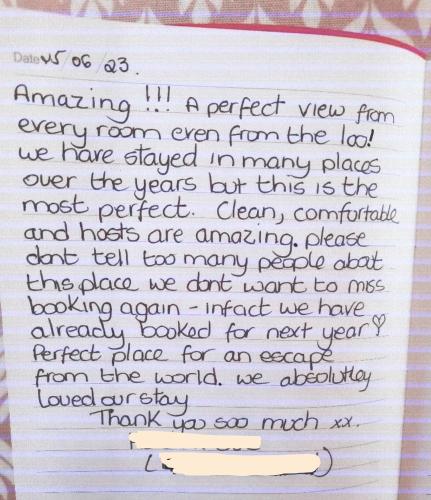 Date 25/06/23.
Amazing !!! A perfect view from
every room even from the loo!
we have stayed in many places
over the years but this is the
most perfect. Clean, comfortable
and hosts are amazing. please
dont tell too many people about
this place we dont want to miss
booking again - infact we have
already booked for next year
Perfect place for an escape
from the world. we absolutley
Loved our stay
Thank you soo much xx.
(          )